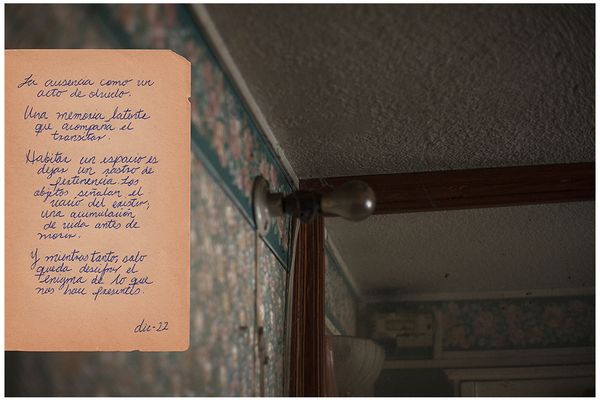 La ausencia como un
acto de olvido.
Una memoria latente
que acompaña el
transitar.
Habitar un espacio es
dejar un rastro de
pertenencia. Los
objetos señalan el
vacío del existir;
una acumulación
de vida antes de
morir.
Y mientras tanto, solo
queda descifrar el
enigma de lo que
nos hace presentes.
dic-22